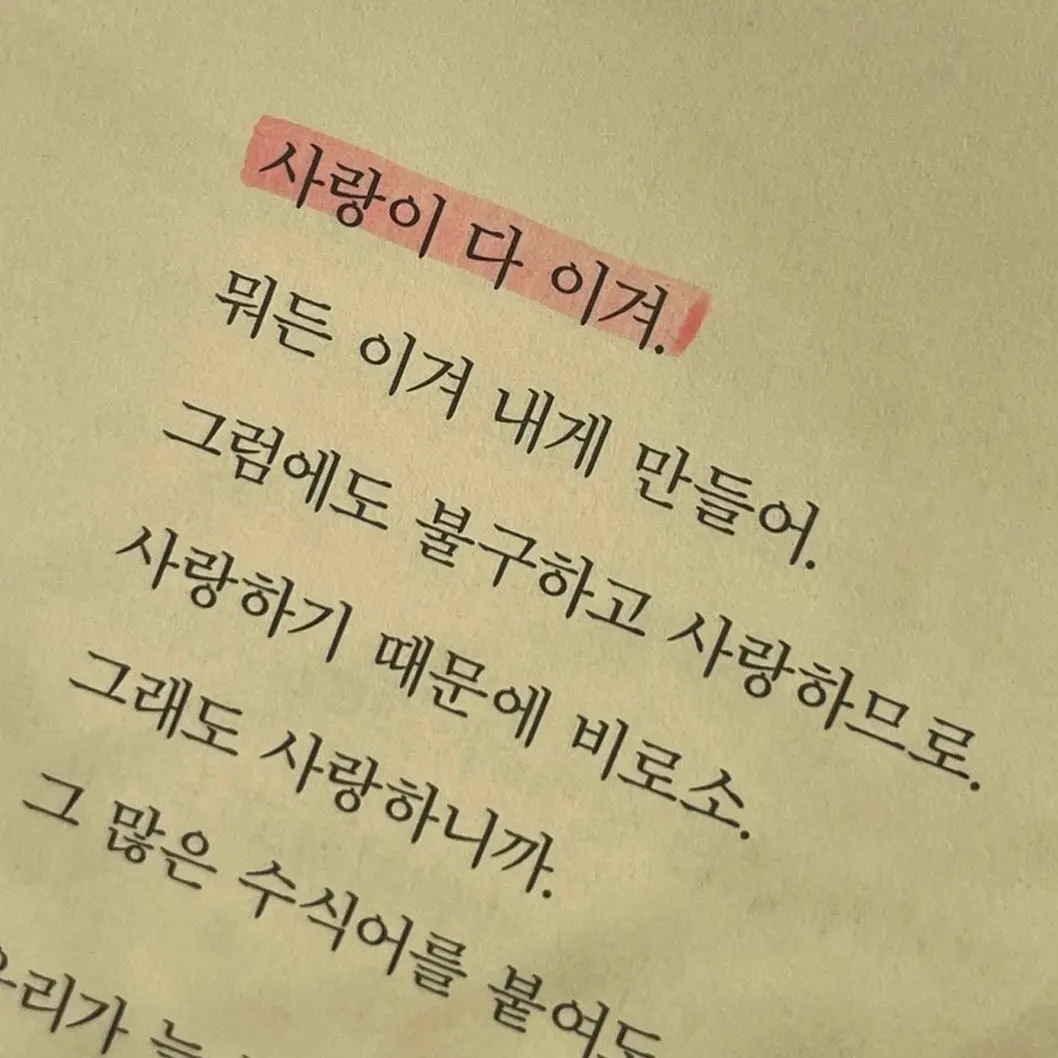 사랑이 다 이겨.
뭐든 이겨 내게 만들어.
그럼에도 불구하고 사랑하므로.
사랑하기 때문에 비로소.
그래도 사랑하니까.
그 많은 수식어를 붙여도
우리가 늘